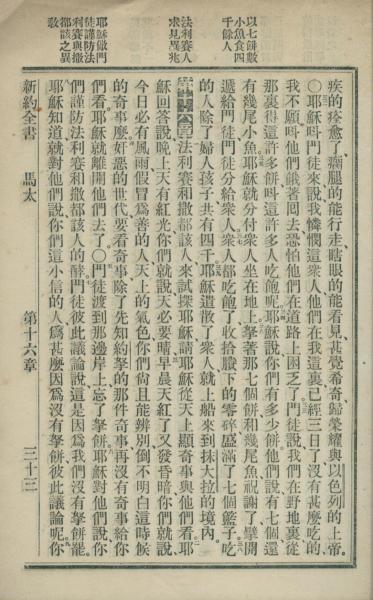 以七餅數
小魚食四
千餘人
法利賽人
求見異兆
耶穌儆門
徒謹防法
利賽與撒
都該之異
敎
疾的痊愈了瘸腿的能行走瞎眼的能看見甚覺希奇歸榮耀與以色列的上帝。
〇耶穌叫門徒來說我憐憫這衆人他們在我這裏已經三日了沒有甚麼吃的
我不願叫他們餓著回去恐怕他們在道路上困乏了門徒說我們在野地裏從
那裏得這許多餅叫這許多人吃飽呢耶穌說你們有多少餅他們說有七個還
有幾尾小魚耶穌就分付衆人坐在地上拏著那七個餅和幾尾魚祝謝了擘開
遞給門徒門徒分給衆人衆人都吃飽了收拾賸下的零碎盛滿了七個籃子吃
的人除了婦人孩子共有四千耶穌遣散了衆人就上船來到抹大拉的境內。
第十六章法利賽和撒都該人來試探耶穌請耶穌從天上顯奇事與他們看耶
穌回答說晚上天有紅光你們就說天必要晴早晨天紅了又發昏暗你們就說
今日必有風雨假冒爲善的人天上的氣色你們尚且能辨別倒不明白這時候
的奇事麼奸惡的世代要看奇事除了先知約拏的那件奇事再沒有奇事給你
們看耶穌就離開他們去了〇門徒渡到那邊岸上忘了拏餅耶穌對他們說你
們謹防法利賽和撒都該人的酵門徒彼此議論說這是因爲我們沒有拏餅罷
耶穌知道就對他們說你們這小信的人爲甚麼因爲沒有拏餅彼此議論呢你
新約全書 馬太 第十六章 三十三